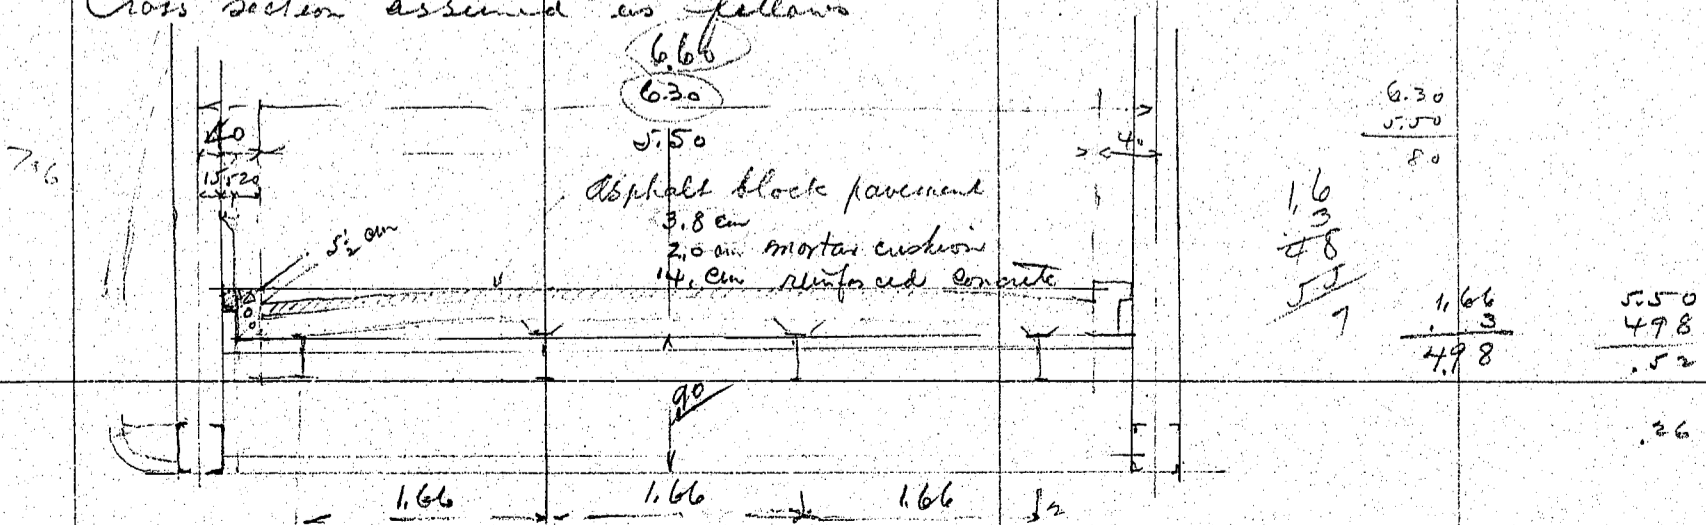 Cross section assumed as follows
6.60
6.30
5.50
40
40
15 5 20
5½ cm
asphalt block pavement
3.8 cm
2.0 cm mortar cushion
14. cm reinforced concrete
90
1.66 1.66 1.66
6.30
5.50
80
1.6
3
48
55
7
1.66
3
4.98
5.50
4.98
.52
.26